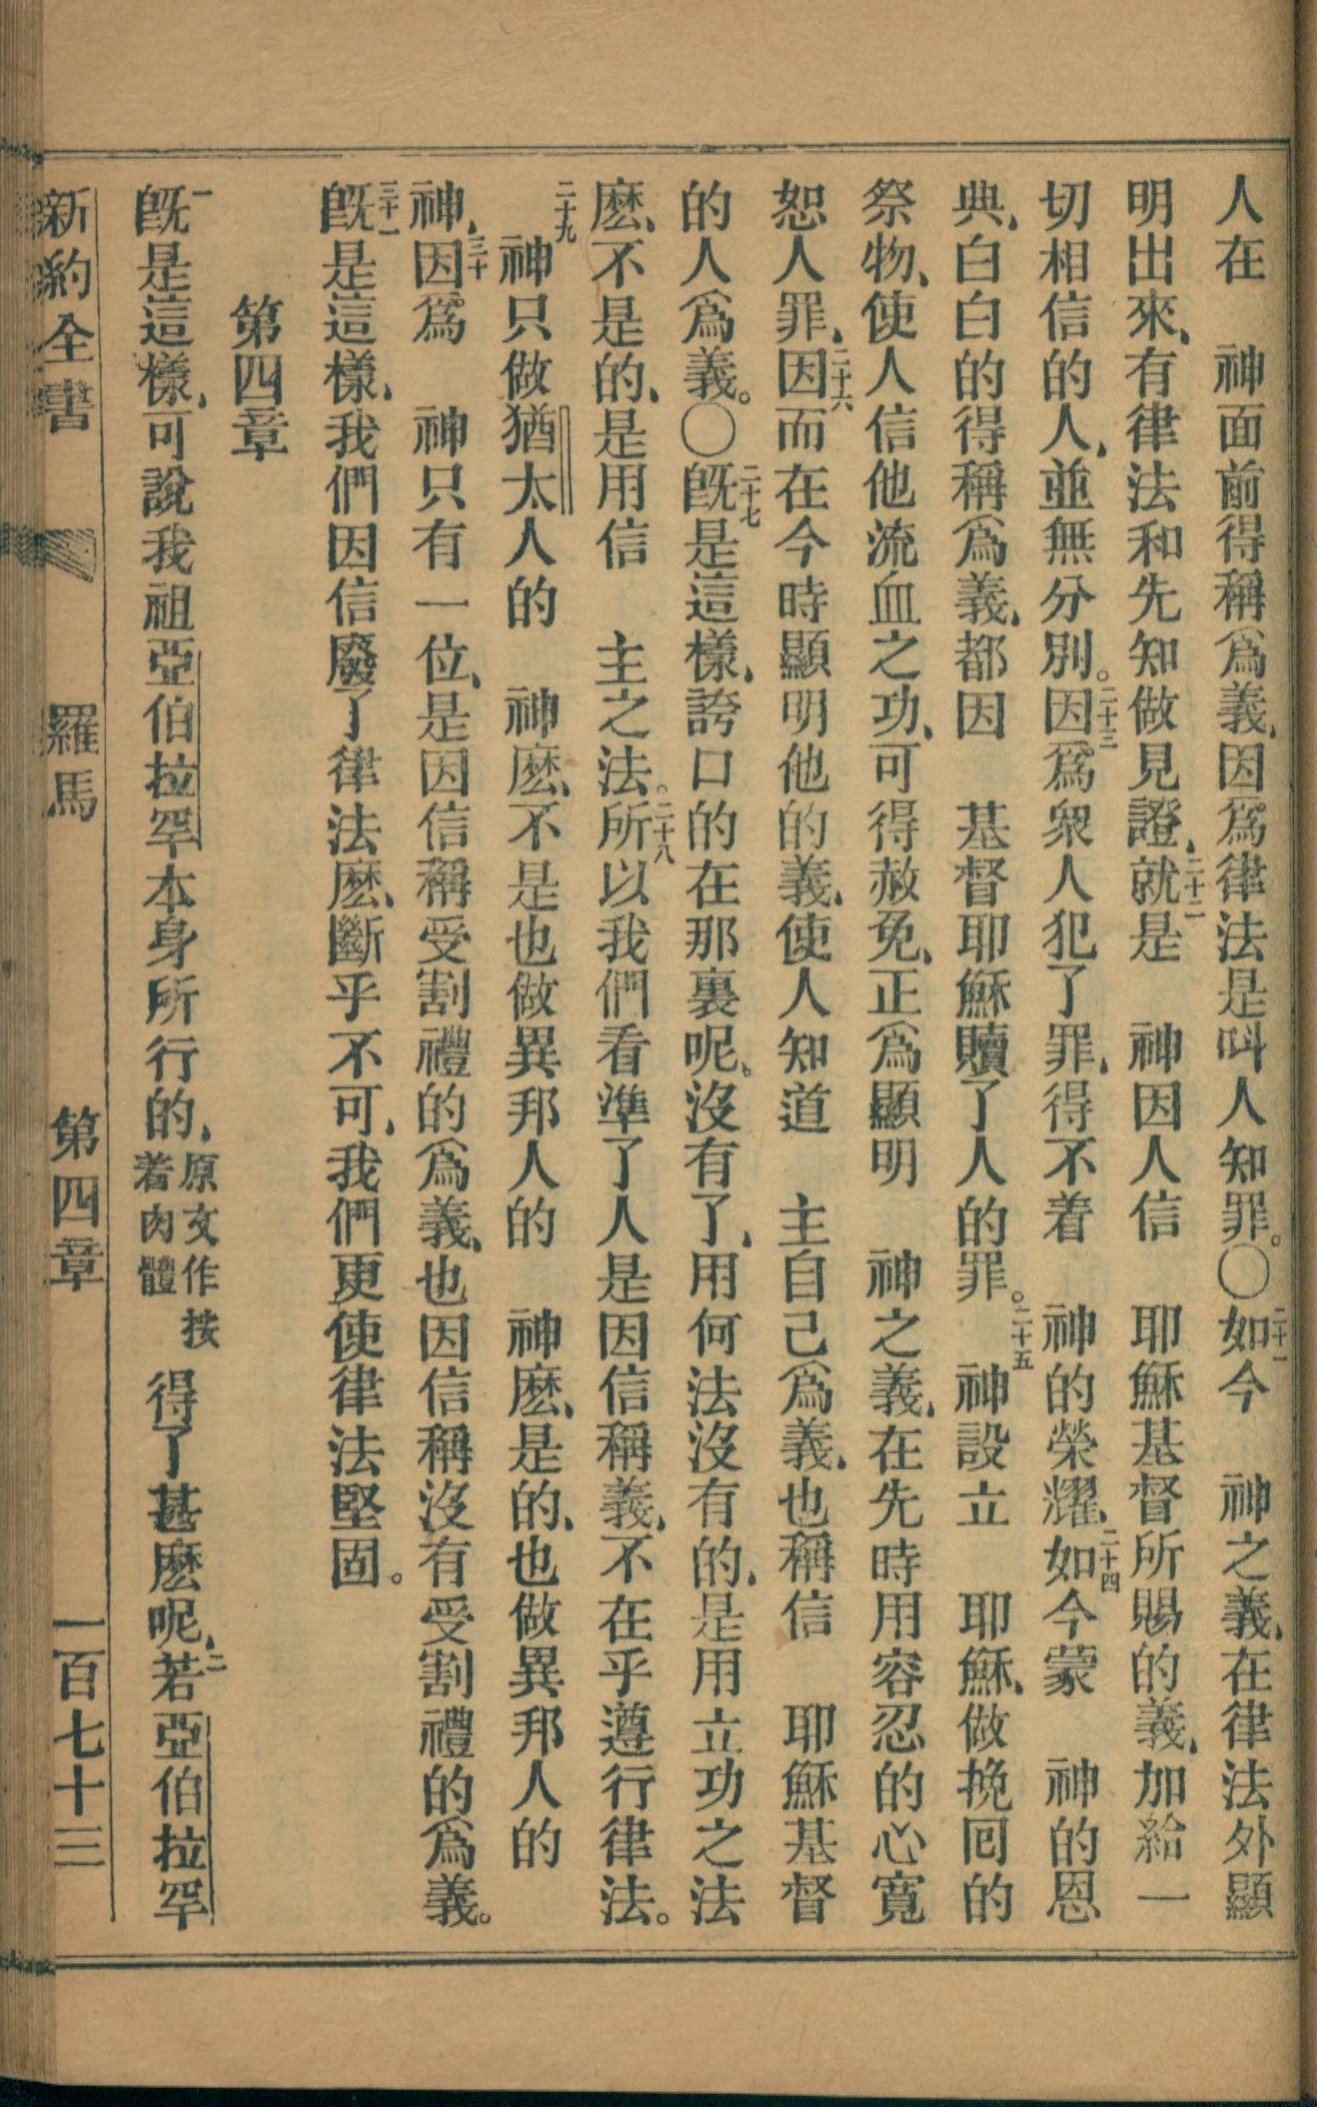 人在　神面前得稱爲義、因爲律法是叫人知罪。〇二十一如今　神之義、在律法外顯
明出來、有律法和先知做見證、二十二就是　神因人信　耶穌基督所賜的義、加給一
切相信的人、並無分別。二十三因爲衆人犯了罪、得不着　神的榮耀、二十四如今蒙　神的恩
典、白白的得稱爲義、都因　基督耶穌贖了人的罪。二十五　神設立　耶穌、做挽回的
祭物、使人信他流血之功、可得赦免、正爲顯明　神之義、在先時用容忍的心寬
恕人罪、二十六因而在今時顯明他的義、使人知道　主自己爲義、也稱信　耶穌基督
的人爲義。〇二十七既是這樣、誇口的在那裏呢。沒有了、用何法沒有的、是用立功之法
麽、不是的、是用信　主之法。二十八所以我們看準了人是因信稱義、不在乎遵行律法。
二十九　神只做猶太人的　神麽、不是也做異邦人的　神麽、是的、也做異邦人的
神、三十因爲　神只有一位、是因信稱受割禮的爲義、也因信稱沒有受割禮的爲義。
三十一既是這樣、我們因信廢了律法麽、斷乎不可、我們更使律法堅固。
第四章
一既是這樣、可說我祖亞伯拉罕本身所行的、原文作按着肉體　得了甚麽呢、二若亞伯拉罕
新約全書　羅馬　第四章　一百七十三